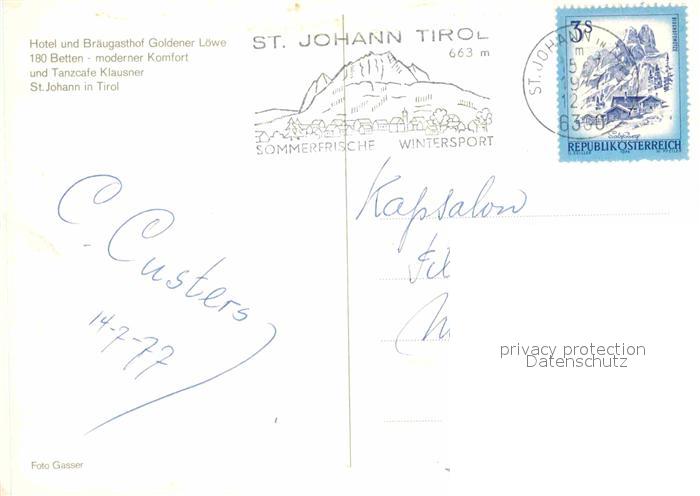 Hotel und Bräugasthof Goldener Löwe
180 Betten - moderner Komfort
und Tanzcafe Klausner
St.Johann in Tirol
ST. JOHANN TIROL
663 m
SOMMERFRISCHE WINTERSPORT
ST. JOHANN IN
6380
3S
BISCHOFSMÜTZE
Salzburg
REPUBLIK ÖSTERREICH
C. Custers
14-7-77
Kapsalon
privacy protection
Datenschutz
Foto Gasser